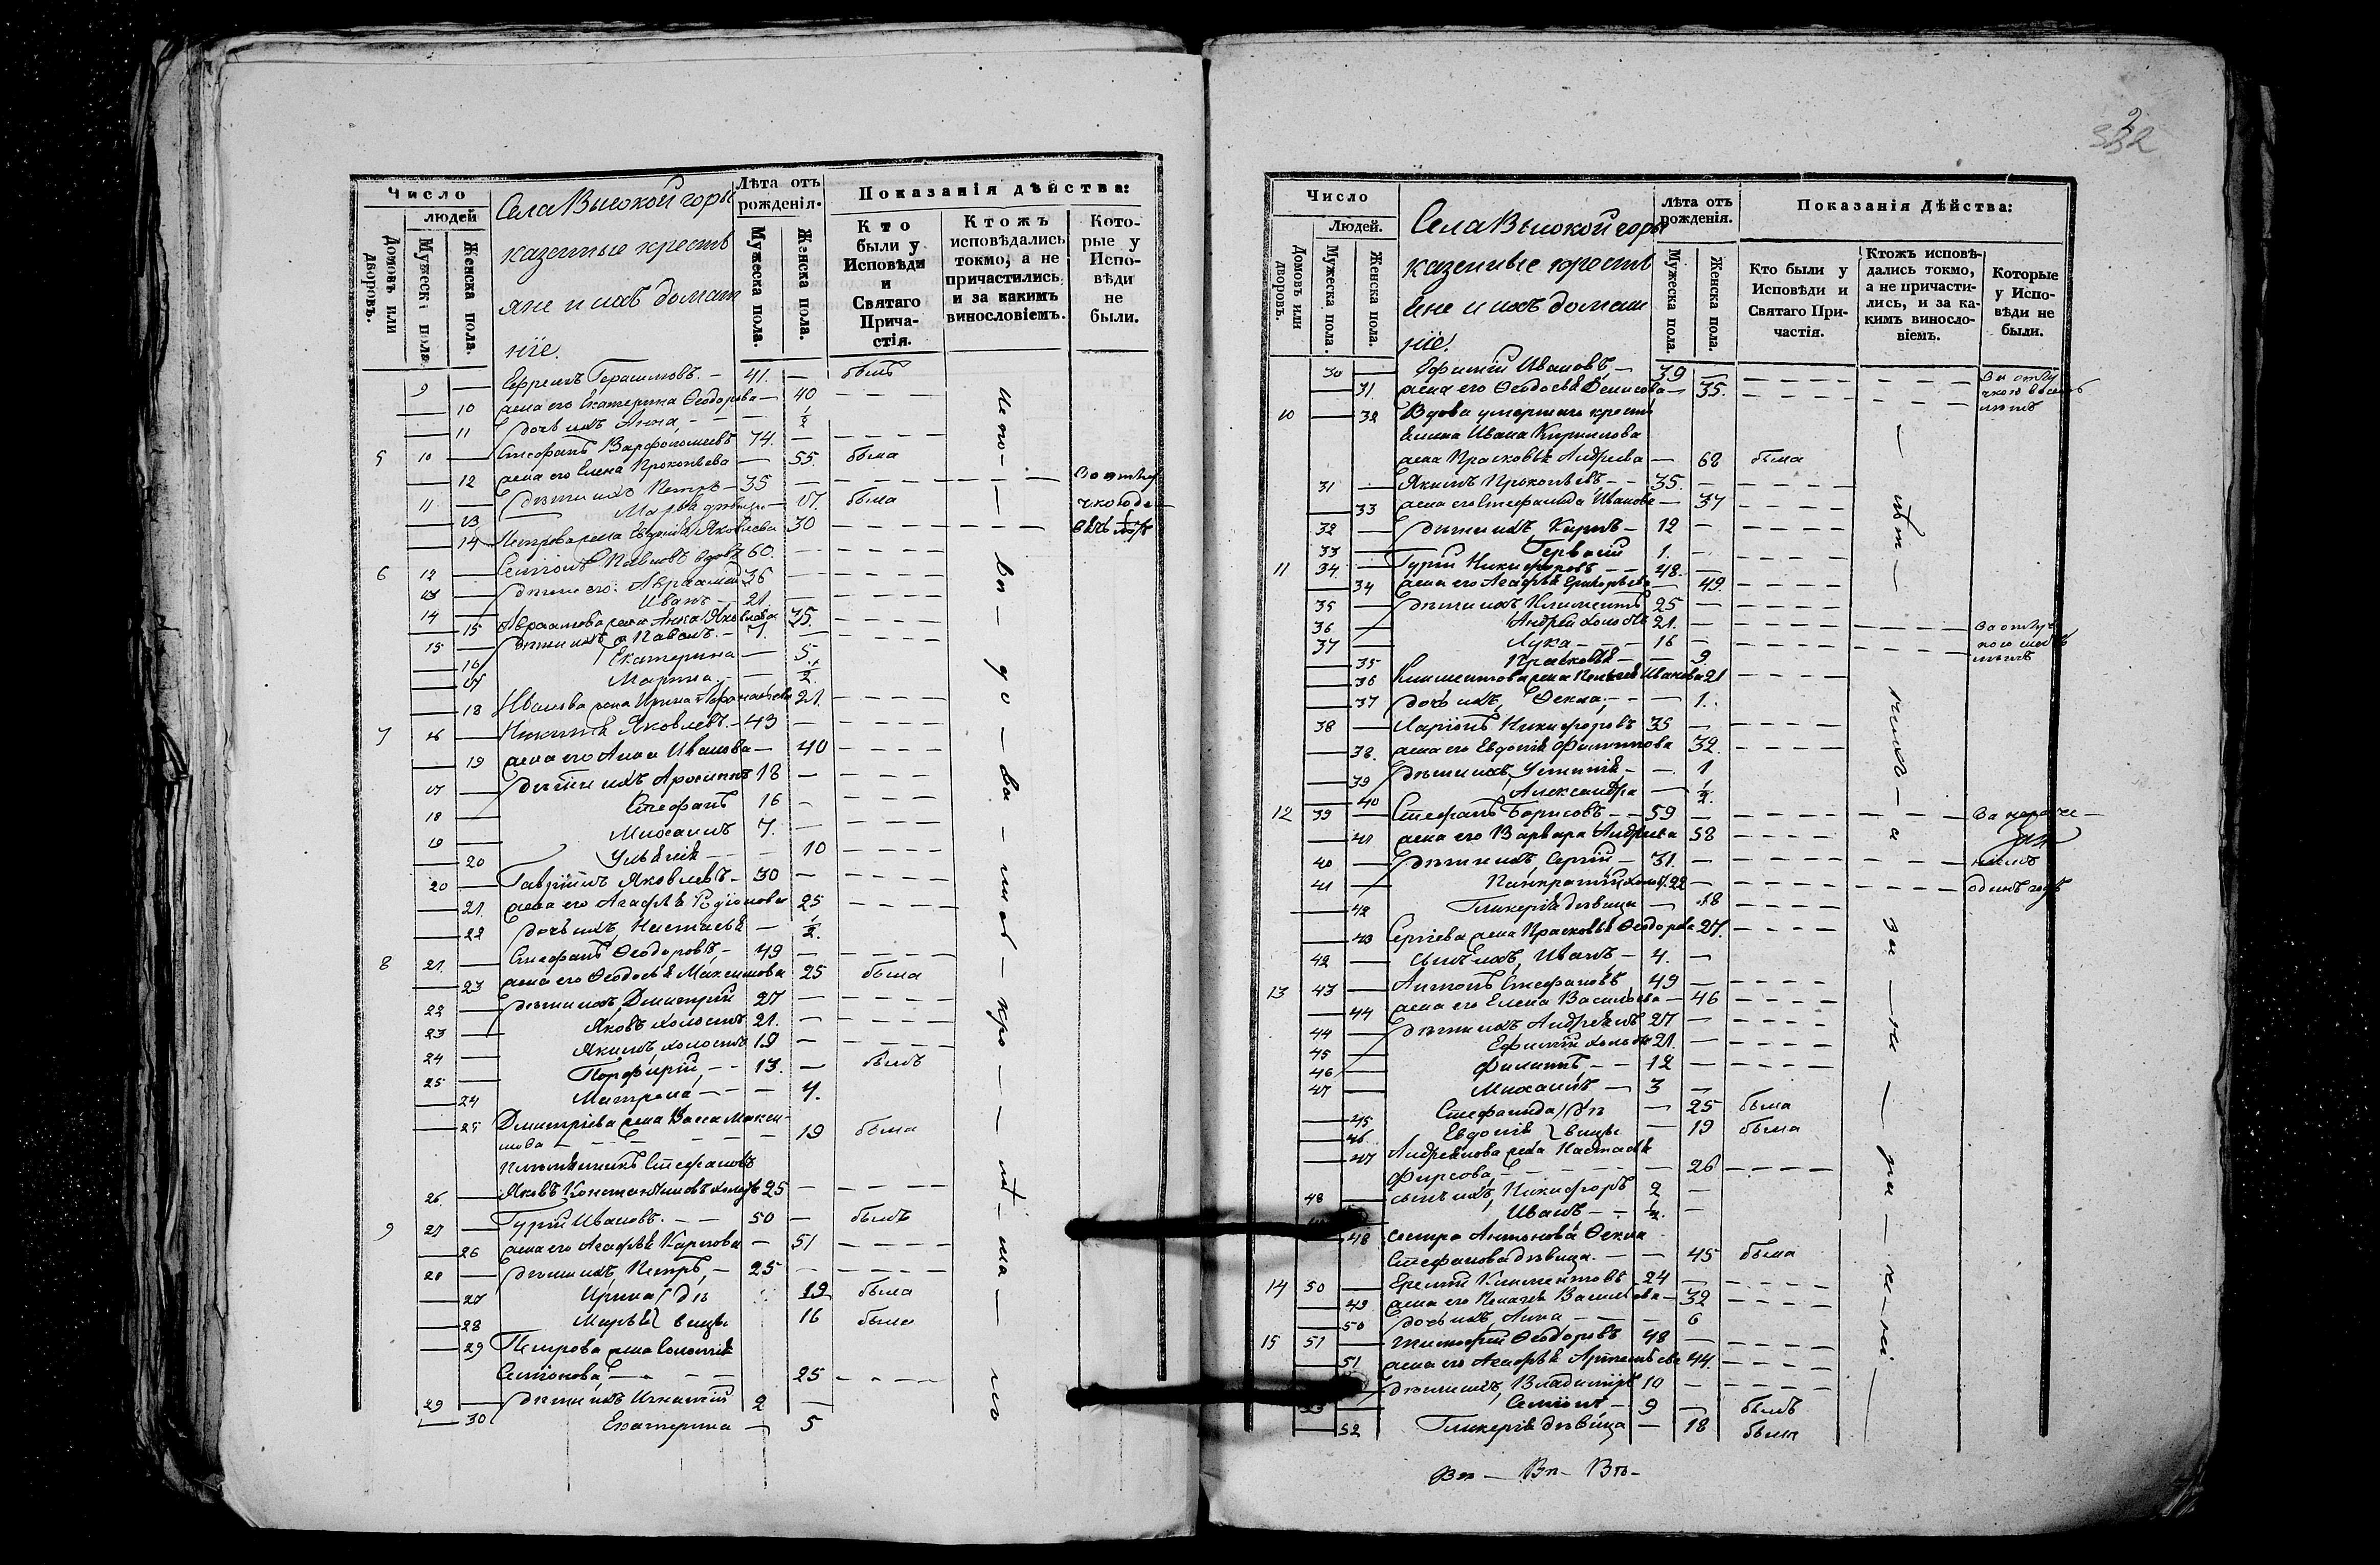 Число
людей
Домовъ или дворовъ.
Мужеска пола.
Женска пола.
Села Высокой горы
казенные кресть
яне и ихъ домаш
ніе.
Лѣта отъ рожденія.
Мужеска пола.
Женска пола.
Показанія дѣйства:
Кто были у Исповѣди и Святаго Прича-стія.
Ктожъ исповѣдались токмо, а не причастились и за какимъ винословіемъ.
Кото-рые у Испо-вѣди не были.
9 — Ефремъ Герасимовъ. — 41. — былъ
— 10 жена его Екатерина Ѳеодорова — 40
— 11 дочь ихъ Анна, — ½
5 10 — Стефанъ Варфоломеевъ 74. —
— 12 жена его Елена Прокопьева — 55. была
11 — дѣти ихъ Петръ — 35 —
— 13 Марья дѣвица — 17. была
— 14 Петрова жена Евдокія Яковлева 30
6 12 — Семіонъ Павловъ вдовъ 60. —
13 — дѣти его: Авраамій 36 —
14 — Иванъ — 21. —
— 15 Авраамова жена Анна Яковлева 35.
15 — дѣти ихъ Павелъ. — 7. —
— 16 Екатерина — 5
— 17 Марина. — ½
— 18 Иванова жена Ирина 21.
7 16 — Никита Яковлевъ. — 43 —
— 19 жена его Анна Иванова — 40
17 — дѣти ихъ 18 —
18 — Стефанъ 16 —
19 — Михаилъ 7. —
— 20 Ульянія — 10
20 — Гавріилъ Яковлевъ — 30 —
— 21 жена его Агафья Родіонова 25
— 22 дочь ихъ, Настасья — ½.
8 21. — Стефанъ Ѳеодоровъ, — 49 —
— 23 жена его Ѳеодосья Максимова 25 была
22 — дѣти ихъ, Димитрій 27 —
23 — Яковъ холостъ 21. —
24 — Якимъ холостъ 19 —
25 — Порфирій, — 13. — былъ
— 24 Матрена — 4.
— 25 Димитріева жена Васса Макси-
мова — 19 была
племянникъ Стефановъ
26. — Яковъ Константиновъ холостъ 25 —
9 27 — Гурій Ивановъ. — 50 — былъ
— 26 жена его Агафья Карпова — 51
28 — дѣти ихъ, Петръ, — 25 —
— 27 Ирина дѣ 19 была
— 28 Марья вицы 16 была
— 29 Петрова жена Соломія
Семіонова, — 25
29 — дѣти ихъ Игнатій 2 —
— 30 Екатерина — 5
Число
Людей.
Домовъ или дворовъ.
Мужеска пола.
Женска пола.
Села Высокой горы
казенные кресть
яне и ихъ домаш
ніе.
Лѣта отъ рожденія.
Мужеска пола.
Женска пола.
Показанія Дѣйства:
Кто были у Исповѣди и Святаго При-частія.
Ктожъ исповѣ-дались токмо, а не причасти-лись, и за ка-кимъ винсло-віемъ.
Которые у Испо-вѣди не были.
30 — Ефимій Ивановъ — 39 —
— 31. жена его Ѳеодосья Денисова — 35.
10 — 32 Вдова умершаго кресть
янина Ивана Кириллова
жена Прасковья Андреева — 68 была
31 — Якимъ Прокопьевъ — 35. —
— 33 жена его Стефанида Иванова — 37
32 — дѣти ихъ, Карпъ — 12 —
33 — Гервасій 1. —
11 34. — Гурій Никифоровъ — 48. —
— 34 жена его Агафья Григорьева — 49.
35 — дѣти ихъ Климентъ 25 —
36 — Андрей холостъ 21. —
37 — Лука — 16 —
— 35 Прасковья — 9
— 36 Климентова жена Пелагея Иванова 21
— 37 дочь ихъ, Ѳекла, — 1.
38 — Ларіонъ Никифоровъ 35 —
— 38. жена его Евдокія Филиппова 32.
— 39 дѣти ихъ, Устинья — 1
— 40 Александра — ½.
12 39 — Стефанъ Борисовъ — 59 —
— 41 жена его Варвара Андреева 58
40 — дѣти ихъ Сергій — 31. —
41 — Панкратій холост. 22 —
— 42 Гликерія дѣвица — 18
— 43 Сергіева жена Прасковья Ѳеодорова 27.
42 — сынъ ихъ, Иванъ — 4. —
13 43 — Антонъ Стефановъ 49 —
— 44 жена его Елена Васильева — 46
44 — дѣти ихъ Андреянъ 27 —
45 — Ефимій холостъ 21. —
46 — Филиппъ, — 12 —
47 — Михаилъ — 3 —
— 45 Стефанида дѣ — 25 была
— 46 Евдокія вицы — 19 была
— 47 Андреянова жена Настасья
Фирсова, — 26
48 — сынъ ихъ, Никифоръ 2 —
Иванъ — ½. —
48 сестра Антонова Ѳекла
Стефанова дѣвица — 45 была
14 50 — Еремій Климентовъ 24 —
— 49 жена его Пелагея Васильева — 32
— 50 дочь ихъ, Анна — 6
15 51 — Тимофей Ѳеодоровъ 48 —
— 51 жена его Агафья Артемьева 44.
дѣти ихъ, Владиміръ 10 —
53 — Семіонъ — 9 — былъ
— 52 Гликерія дѣвица — 18 была